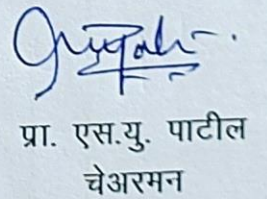 प्रा. एस.यु. पाटील
चेअरमन